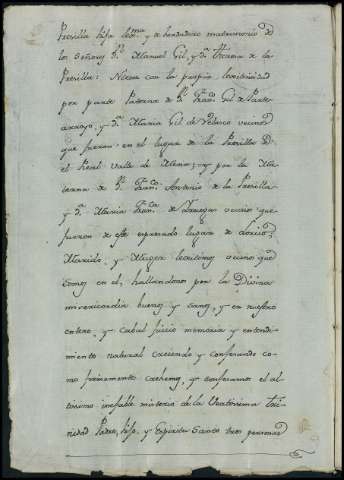 Portilla hija leg.ma y de berdadero matrimonio de
los Señores D.n Manuel Gil, y D.a Maria de la
Portilla: Nieta con la propia legitimidad
por parte Paterna de D.n Fran.co Gil de Parte
arroyo, y D.a Maria Gil de Velasco vecinos
que fueron en el lugar de la Portilla D.
el Real Valle de Mena; y por la Ma
terna de D.n Fran.co Antonio de la Portilla
y D.a Maria Fran.ca de vecinos que
fueron de este expresado lugar de
Marido, y Muger legitimos vecinos que
somos en el, hallandonos por la Divina
misericordia buenos y sanos, y en nuestro
entero, y cabal juicio memoria y entendi
miento natural creiendo y confesando co
mo firmemente crehemos, y confesamos el al
tisimo inefable misterio de la Beatisima tri
nidad Padre, hijo, y Espiritu Santo tres personas